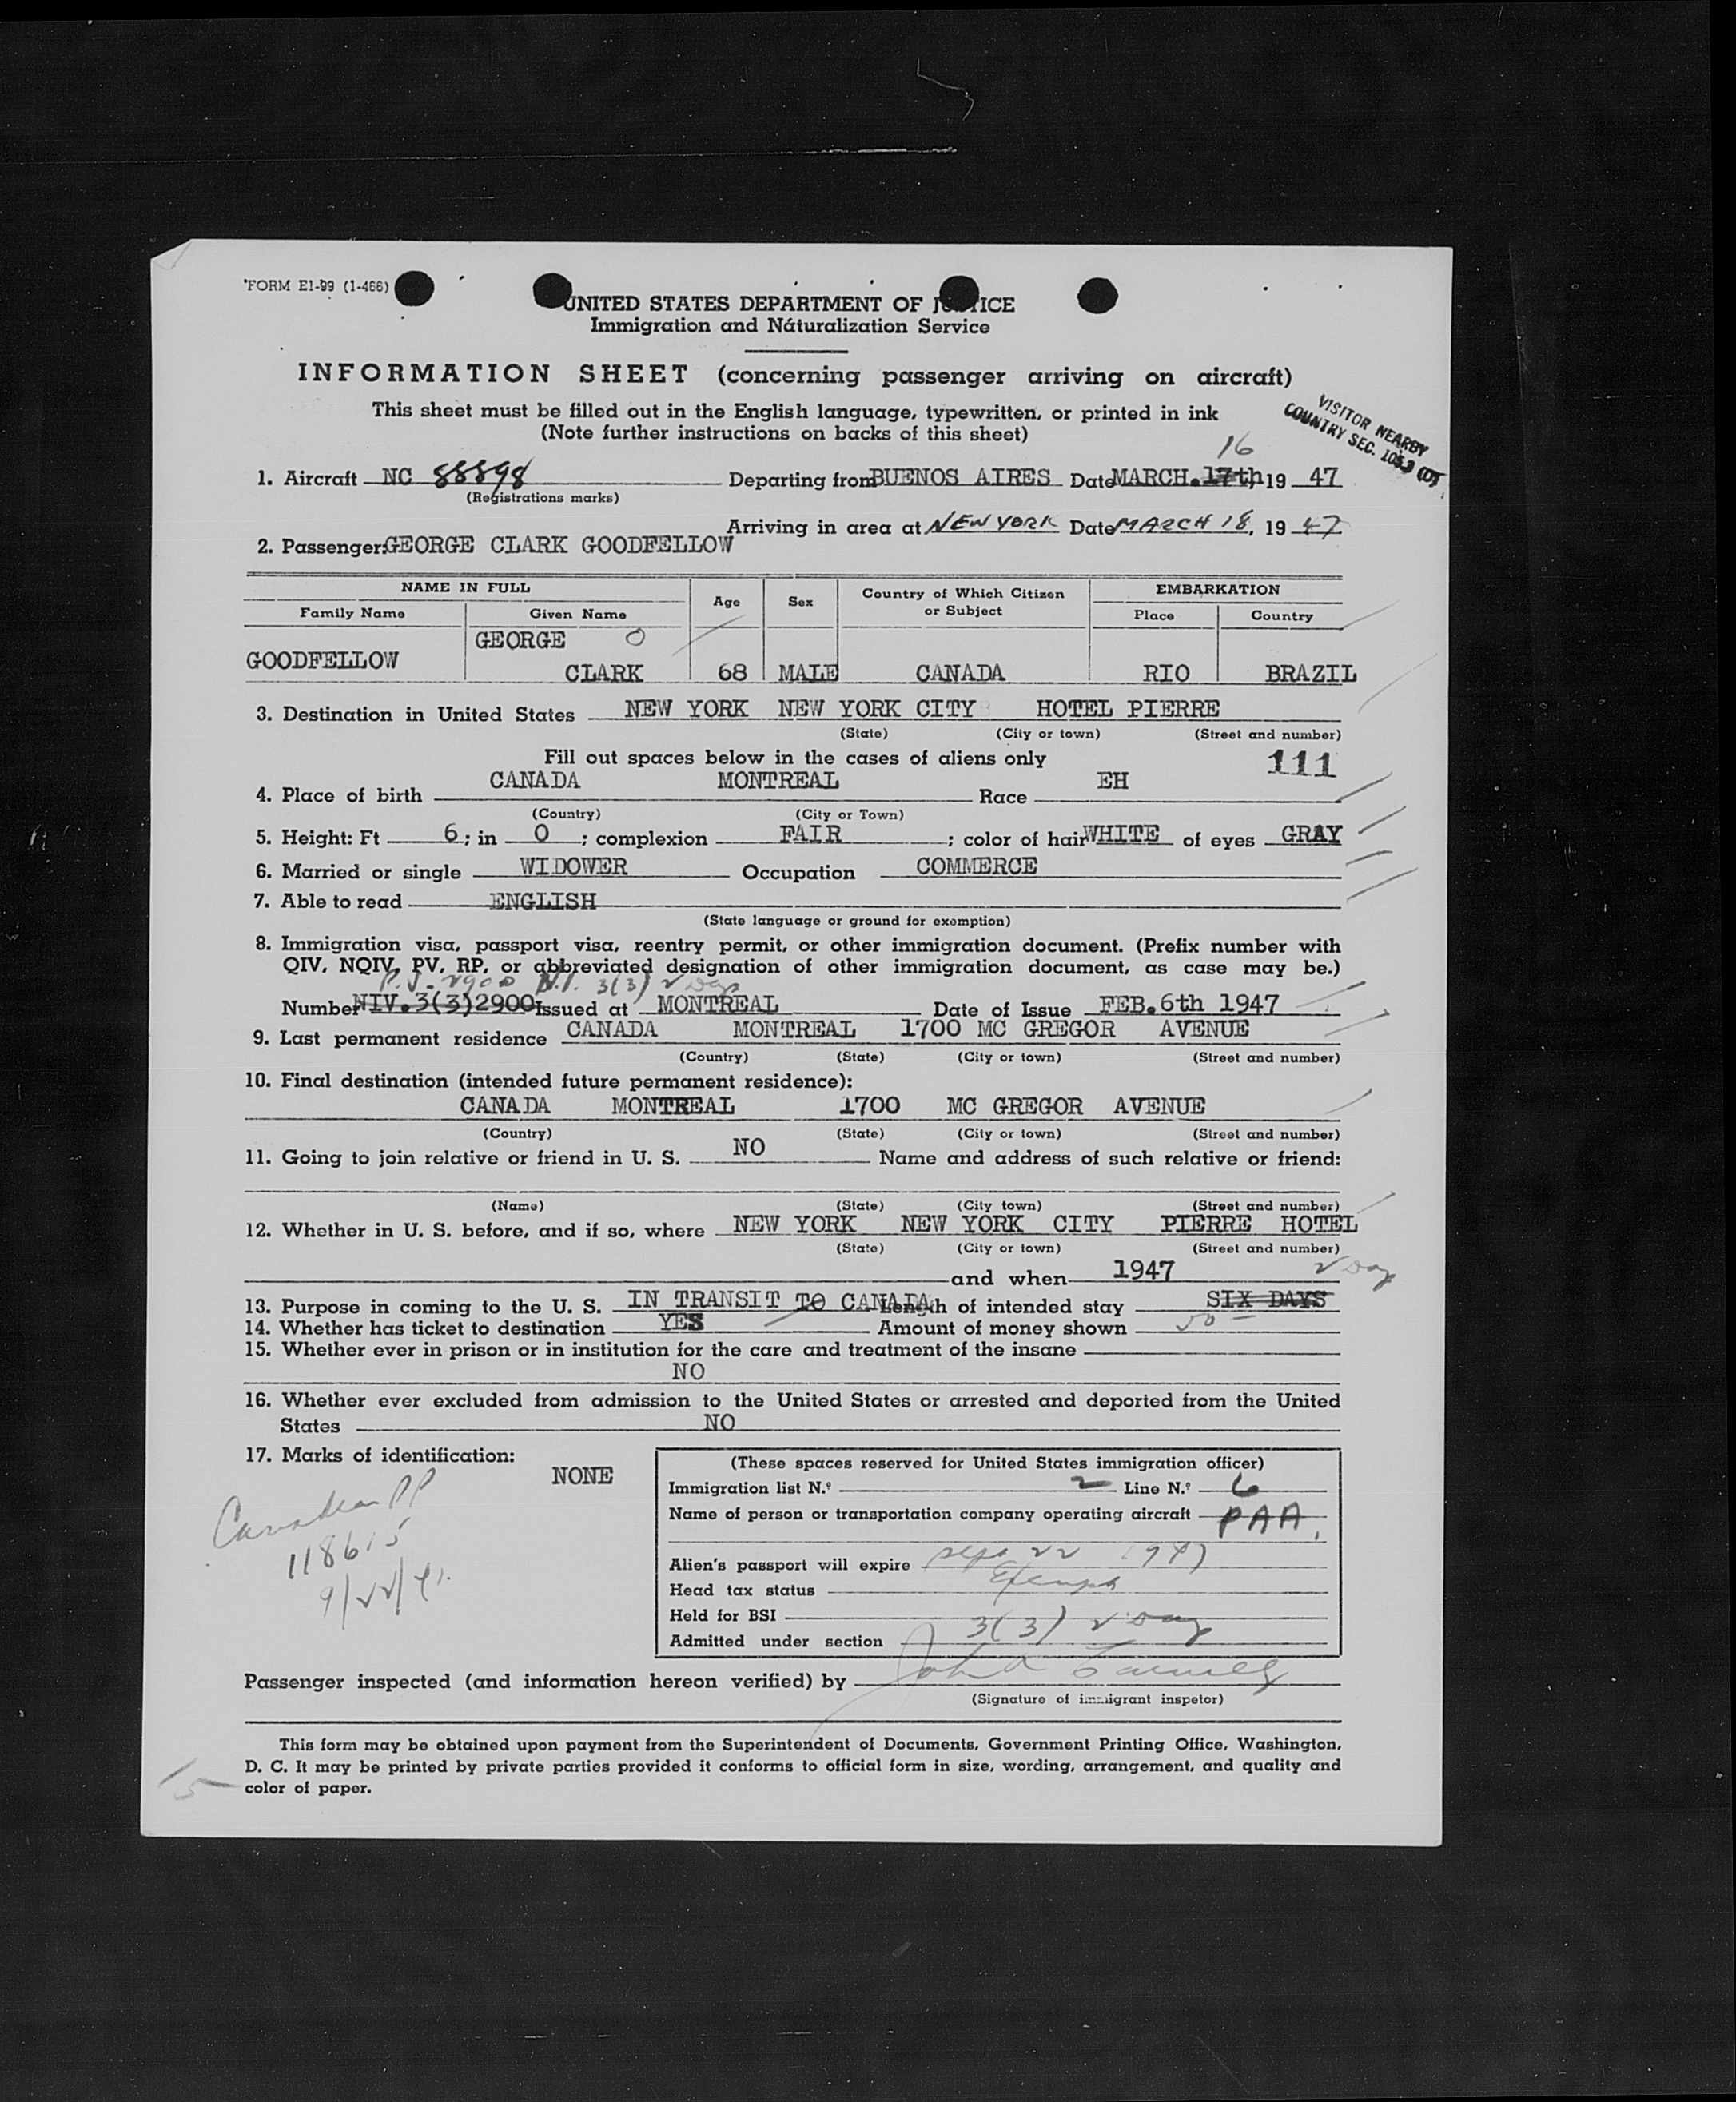 FORM E1-99 (1-466)
UNITED STATES DEPARTMENT OF JUSTICE
Immigration and Naturalization Service
INFORMATION SHEET (concerning passenger arriving on aircraft)
This sheet must be filled out in the English language, typewritten, or printed in ink
(Note further instructions on backs of this sheet)
VISITOR NEARBY
COUNTRY SEC.
16
1. Aircraft NC 88898 Departing from BUENOS AIRES Date MARCH. 17th, 19 47
(Registrations marks)
Arriving in area at NEW YORK Date MARCH 18, 19 47
2. Passenger: GEORGE CLARK GOODFELLOW
NAME IN FULL Age Sex Country of Which Citizen or Subject EMBARKATION
Family Name Given Name Place Country
GEORGE
GOODFELLOW CLARK 68 MALE CANADA RIO BRAZIL
3. Destination in United States NEW YORK NEW YORK CITY HOTEL PIERRE
(State) (City or town) (Street and number)
Fill out spaces below in the cases of aliens only 111
4. Place of birth CANADA MONTREAL Race EH
(Country) (City or Town)
5. Height: Ft 6; in 0; complexion FAIR; color of hair WHITE of eyes GRAY
6. Married or single WIDOWER Occupation COMMERCE
7. Able to read ENGLISH
(State language or ground for exemption)
8. Immigration visa, passport visa, reentry permit, or other immigration document. (Prefix number with
QIV, NQIV, PV, RP, or abbreviated designation of other immigration document, as case may be.)
2900 3(3)
Number NIV.3(3)2900 Issued at MONTREAL Date of Issue FEB.6th 1947
9. Last permanent residence CANADA MONTREAL 1700 MC GREGOR AVENUE
(Country) (State) (City or town) (Street and number)
10. Final destination (intended future permanent residence):
CANADA MONTREAL 1700 MC GREGOR AVENUE
(Country) (State) (City or town) (Street and number)
11. Going to join relative or friend in U. S. NO Name and address of such relative or friend:
(Name) (State) (City town) (Street and number)
12. Whether in U. S. before, and if so, where NEW YORK NEW YORK CITY PIERRE HOTEL
(State) (City or town) (Street and number)
and when 1947
13. Purpose in coming to the U. S. IN TRANSIT TO CANADA Length of intended stay SIX DAYS
14. Whether has ticket to destination YES Amount of money shown 50
15. Whether ever in prison or in institution for the care and treatment of the insane
NO
16. Whether ever excluded from admission to the United States or arrested and deported from the United
States NO
17. Marks of identification:
NONE
Canadian PP
118615
(These spaces reserved for United States immigration officer)
Immigration list N.º 2 Line N.º 6
Name of person or transportation company operating aircraft PAA.
Alien's passport will expire Sept 22 1947
Head tax status Exempt
Held for BSI
Admitted under section 3(3)
Passenger inspected (and information hereon verified) by John
(Signature of immigrant inspetor)
This form may be obtained upon payment from the Superintendent of Documents, Government Printing Office, Washington,
D. C. It may be printed by private parties provided it conforms to official form in size, wording, arrangement, and quality and
color of paper.